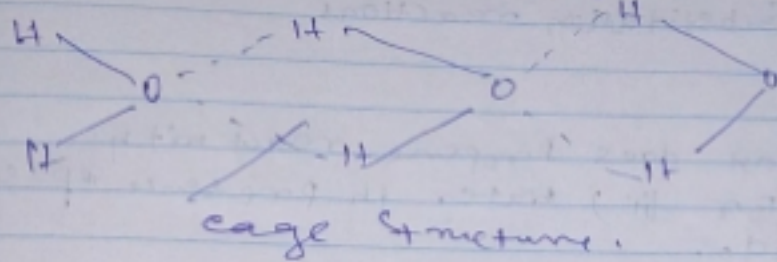 H H H
O O O
H H H
cage structure.